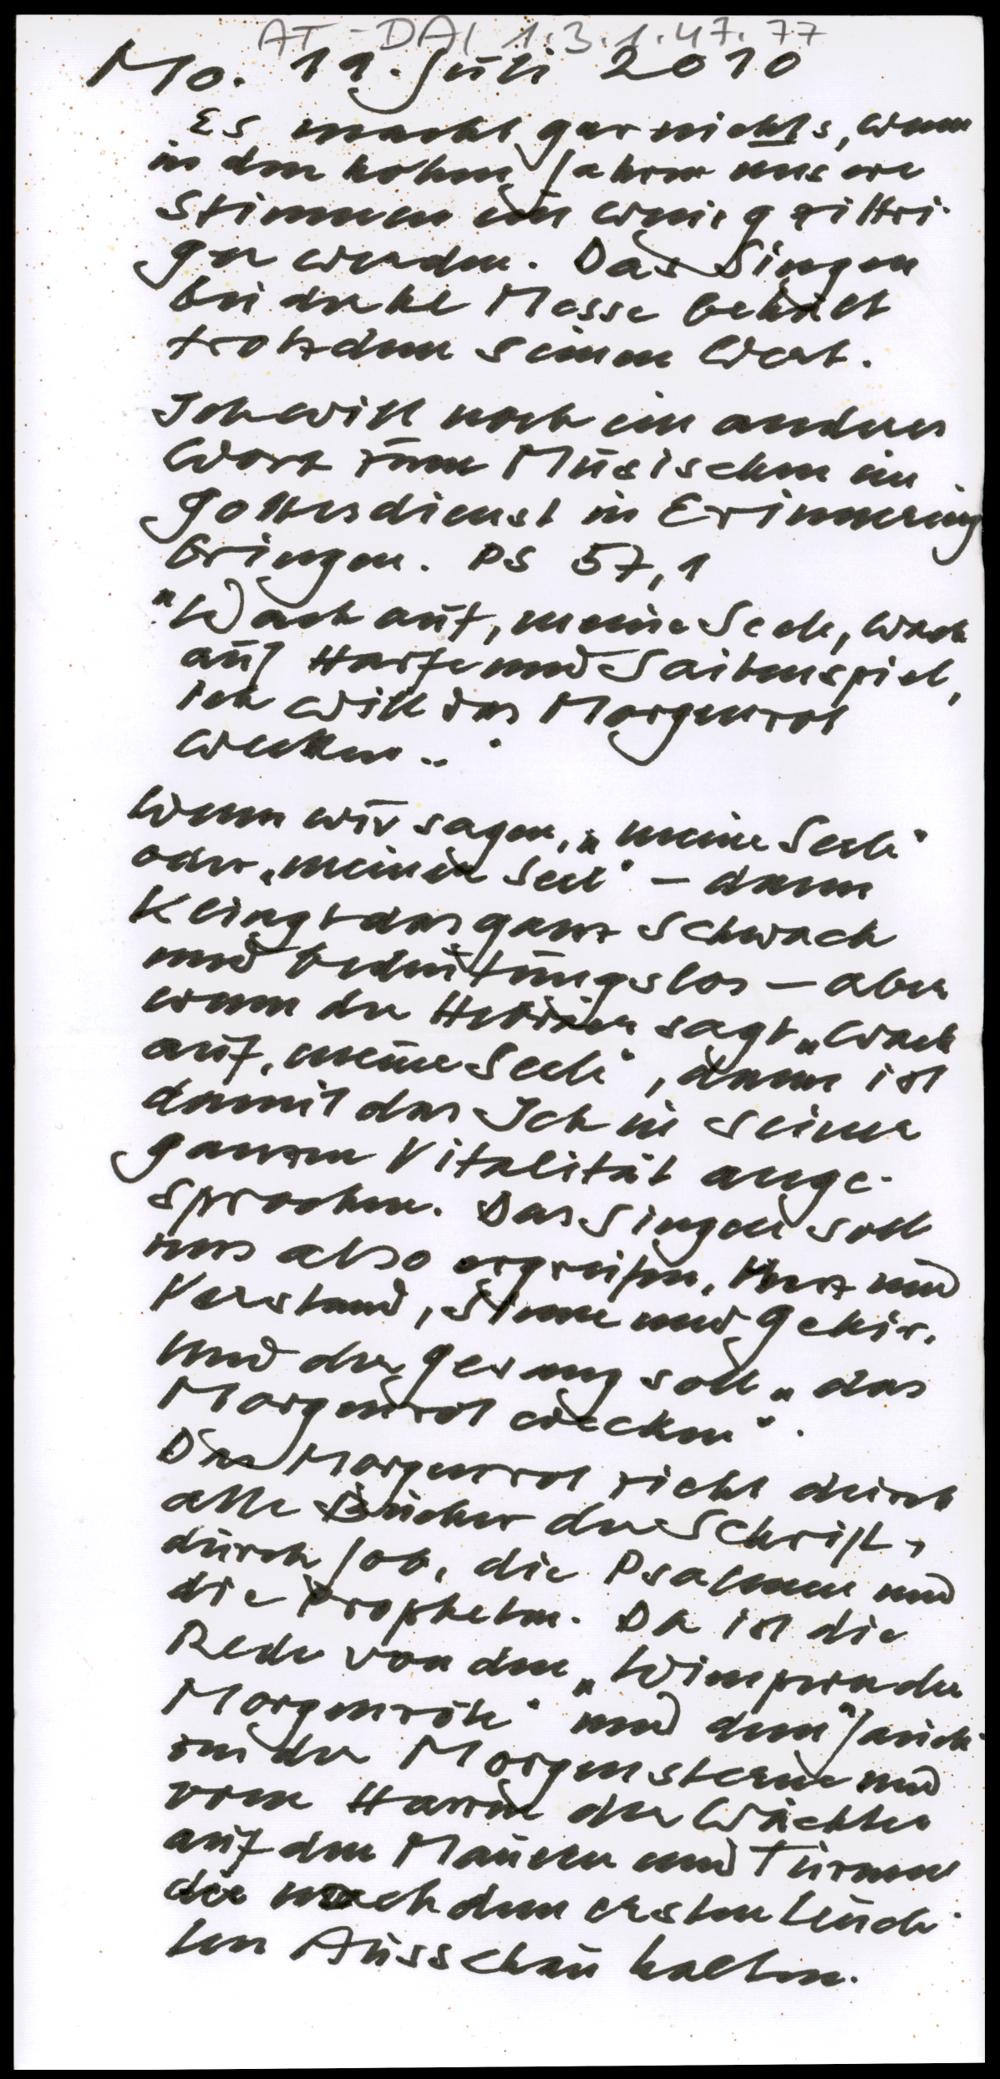 AT-DAI 1.3.1.47.77
Mo. 19. Juli 2010
Es macht gar nichts, wenn
in den hohen Jahren unsere
Stimmen ein wenig zittri-
ger werden. Das Singen
bei der hl Messe behält
trotzdem seinen Wert.
Ich will noch ein anderes
Wort zum Musischen im
Gottesdienst in Erinnerung
bringen. PS 57,1
"Wach auf, meine Seele, wach
auf Harfe und Saitenspiel,
ich will das Morgenrot
wecken.."
Wenn wir sagen, "meine Seele"
oder "meiner Seel" – dann
klingt das ganz schwach
und bedeutungslos – aber
wenn der Hebräer sagt "Wach
auf, meine Seele", dann ist
damit das Ich in seiner
ganzen Vitalität ange-
sprochen. Das Singen soll
uns also ergreifen, Herz und
Verstand, Sinne und Gehir.
Und der Gesang soll "das
Morgenrot wecken".
Das Morgenrot zieht durch
alle Bücher der Schrift,
durch Job, die Psalmen und
die Propheten. Da ist die
Rede von den "Wimpern der
Morgenröte" und dem "Jauch-
zen der Morgensterne und
vom Harren der Wächter
auf den Mauern und Türmen
die nach dem ersten Leuch-
ten Ausschau halten.